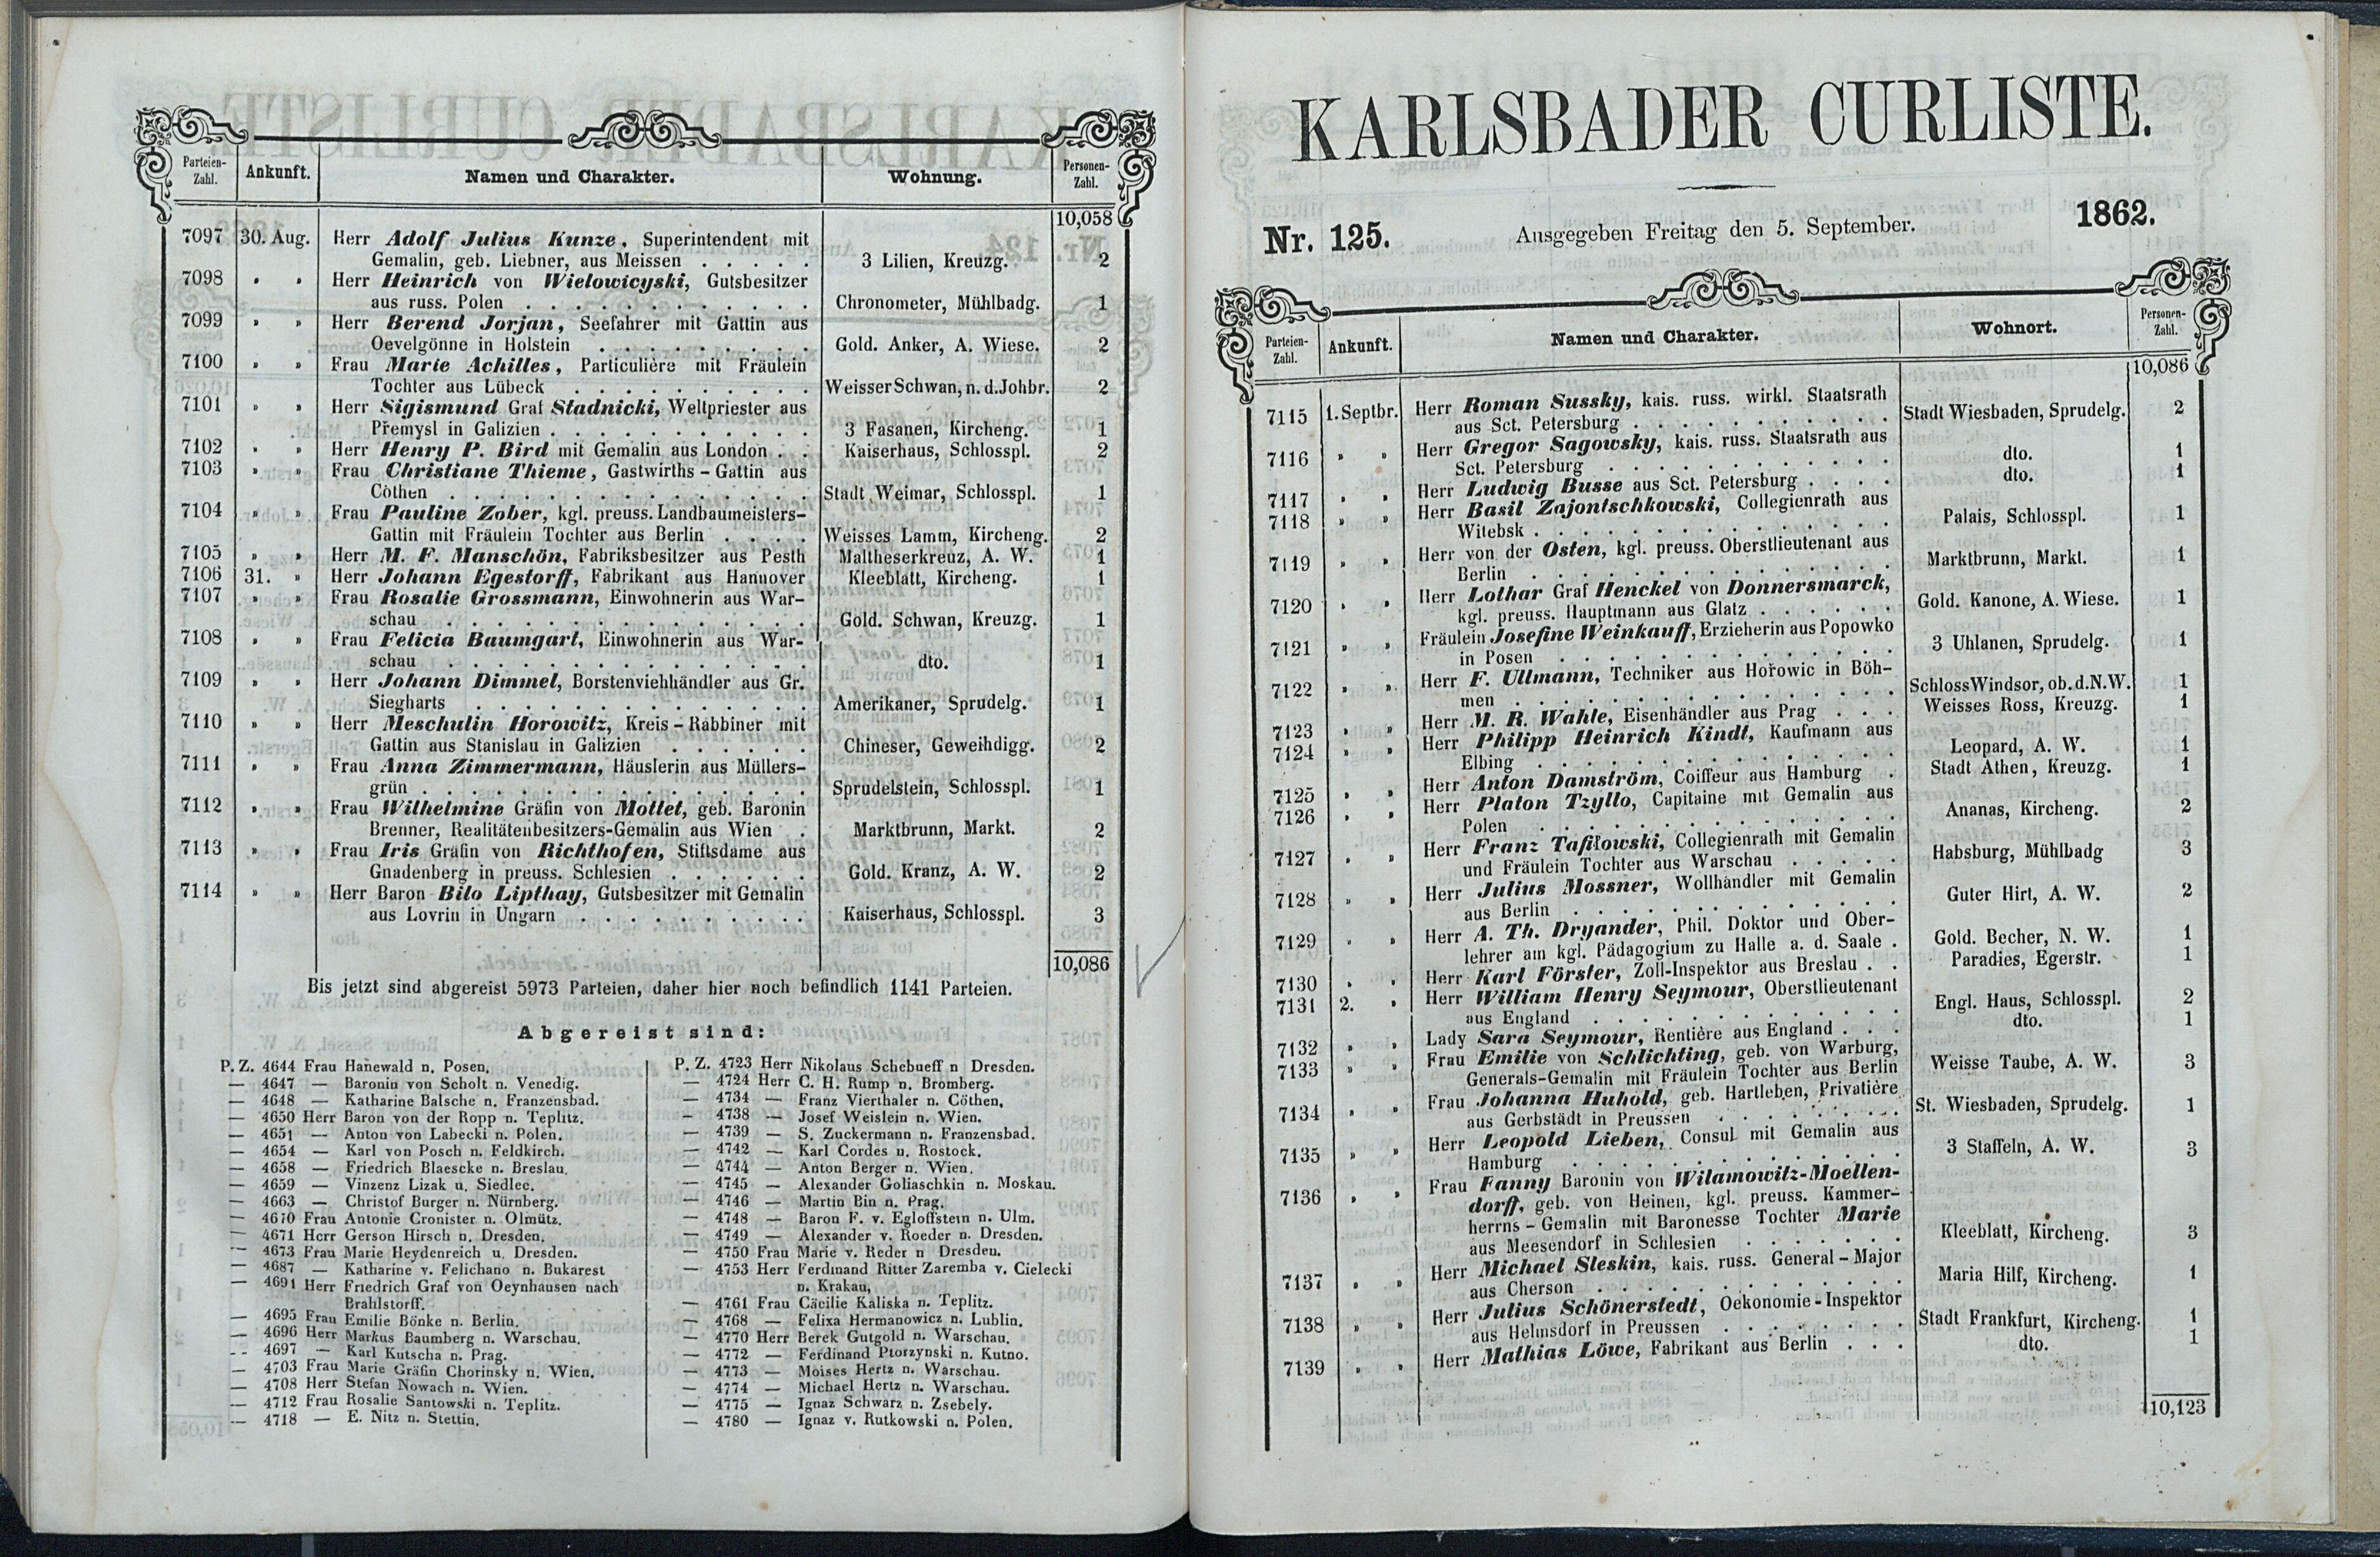 Parteien-Zahl. Ankunft. Namen und Charakter. Wohnung. Personen-Zahl.
10,058
7097 30. Aug. Herr Adolf Julius Kunze, Superintendent mit
Gemalin, geb. Liebner, aus Meissen . . . . . 3 Lilien, Kreuzg. 2
7098 „ „ Herr Heinrich von Wielowicyski, Gutsbesitzer
aus russ. Polen . . . . . . . . . . . Chronometer, Mühlbadg. 1
7099 „ „ Herr Berend Jorjan, Seefahrer mit Gattin aus
Oevelgönne in Holstein . . . . . . . . . Gold. Anker, A. Wiese. 2
7100 „ „ Frau Marie Achilles, Particulière mit Fräulein
Tochter aus Lübeck . . . . . . . . . . Weisser Schwan, n. d. Johbr. 2
7101 „ „ Herr Sigismund Graf Stadnicki, Weltpriester aus
Přemysl in Galizien . . . . . . . . . . . 3 Fasanen, Kircheng. 1
7102 „ „ Herr Henry P. Bird mit Gemalin aus London . . Kaiserhaus, Schlosspl. 2
7103 „ „ Frau Christiane Thieme, Gastwirths-Gattin aus
Cöthen . . . . . . . . . . . . . . Stadt Weimar, Schlosspl. 1
7104 „ „ Frau Pauline Zober, kgl. preuss. Landbaumeisters-
Gattin mit Fräulein Tochter aus Berlin . . . . Weisses Lamm, Kircheng. 2
7105 „ „ Herr M. F. Manschön, Fabriksbesitzer aus Pesth Maltheserkreuz, A. W. 1
7106 31. „ Herr Johann Egestorff, Fabrikant aus Hannover Kleeblatt, Kircheng. 1
7107 „ „ Frau Rosalie Grossmann, Einwohnerin aus War-
schau . . . . . . . . . . . . . . Gold. Schwan, Kreuzg. 1
7108 „ „ Frau Felicia Baumgart, Einwohnerin aus War-
schau . . . . . . . . . . . . . . dto. 1
7109 „ „ Herr Johann Dimmel, Borstenviehhändler aus Gr.
Siegharts . . . . . . . . . . . . . Amerikaner, Sprudelg. 1
7110 „ „ Herr Meschulin Horowitz, Kreis-Rabbiner mit
Gattin aus Stanislau in Galizien . . . . . . Chineser, Geweihdigg. 2
7111 „ „ Frau Anna Zimmermann, Häuslerin aus Müllers-
grün . . . . . . . . . . . . . . . Sprudelstein, Schlosspl. 1
7112 „ „ Frau Wilhelmine Gräfin von Mottet, geb. Baronin
Brenner, Realitätenbesitzers-Gemalin aus Wien . Marktbrunn, Markt. 2
7113 „ „ Frau Iris Gräfin von Richthofen, Stiftsdame aus
Gnadenberg in preuss. Schlesien . . . . . . Gold. Kranz, A. W. 2
7114 „ „ Herr Baron Bilo Lipthay, Gutsbesitzer mit Gemalin
aus Lovrin in Ungarn . . . . . . . . . . Kaiserhaus, Schlosspl. 3
10,086
Bis jetzt sind abgereist 5973 Parteien, daher hier noch befindlich 1141 Parteien.
Abgereist sind:
P. Z. 4644 Frau Hanewald n. Posen.
— 4647 — Baronin von Scholt n. Venedig.
— 4648 — Katharine Balsche n. Franzensbad.
— 4650 Herr Baron von der Ropp n. Teplitz.
— 4651 — Anton von Labecki n. Polen.
— 4654 — Karl von Posch n. Feldkirch.
— 4658 — Friedrich Blaescke n. Breslau.
— 4659 — Vinzenz Lizak u. Siedlec.
— 4663 — Christof Burger n. Nürnberg.
— 4670 Frau Antonie Cronister n. Olmütz.
— 4671 Herr Gerson Hirsch n. Dresden.
— 4673 Frau Marie Heydenreich u. Dresden.
— 4687 — Katharine v. Felichano n. Bukarest
— 4691 Herr Friedrich Graf von Oeynhausen nach
Brahlstorff.
— 4695 Frau Emilie Bönke n. Berlin.
— 4696 Herr Markus Baumberg n. Warschau.
— 4697 — Karl Kutscha n. Prag.
— 4703 Frau Marie Gräfin Chorinsky n. Wien.
— 4708 Herr Stefan Nowach n. Wien.
— 4712 Frau Rosalie Santowski n. Teplitz.
— 4718 — E. Nitz n. Stettin.
P. Z. 4723 Herr Nikolaus Schebueff n Dresden.
— 4724 Herr C. H. Rump n. Bromberg.
— 4734 — Franz Vierthaler n. Cöthen.
— 4738 — Josef Weislein n. Wien.
— 4739 — S. Zuckermann n. Franzensbad.
— 4742 — Karl Cordes u. Rostock.
— 4744 — Anton Berger n. Wien.
— 4745 — Alexander Goliaschkin n. Moskau.
— 4746 — Martin Bin n. Prag.
— 4748 — Baron F. v. Egloffstein n. Ulm.
— 4749 — Alexander v. Roeder n. Dresden.
— 4750 Frau Marie v. Reder n Dresden.
— 4753 Herr Ferdinand Ritter Zaremba v. Cielecki
n. Krakau.
— 4761 Frau Cäcilie Kaliska n. Teplitz.
— 4768 — Felixa Hermanowicz n. Lublin.
— 4770 Herr Berek Gutgold n. Warschau.
— 4772 — Ferdinand Ptorzynski n. Kutno.
— 4773 — Moises Hertz n. Warschau.
— 4774 — Michael Hertz n. Warschau.
— 4775 — Ignaz Schwarz n. Zsebely.
— 4780 — Ignaz v. Rutkowski n. Polen.
KARLSBADER CURLISTE.
Nr. 125. Ausgegeben Freitag den 5. September. 1862.
Parteien-Zahl. Ankunft. Namen und Charakter. Wohnort. Personen-Zahl.
10,086
7115 1. Septbr. Herr Roman Sussky, kais. russ. wirkl. Staatsrath
aus Sct. Petersburg . . . . . . . . . . Stadt Wiesbaden, Sprudelg. 2
7116 „ „ Herr Gregor Sagowsky, kais. russ. Staatsrath aus
Sct. Petersburg . . . . . . . . . . . dto. 1
7117 „ „ Herr Ludwig Busse aus Sct. Petersburg . . . . dto. 1
7118 „ „ Herr Basil Zajontschkowski, Collegienrath aus
Witebsk . . . . . . . . . . . . . . Palais, Schlosspl. 1
7119 „ „ Herr von der Osten, kgl. preuss. Oberstlieutenant aus
Berlin . . . . . . . . . . . . . . Marktbrunn, Markt. 1
7120 „ „ Herr Lothar Graf Henckel von Donnersmarck,
kgl. preuss. Hauptmann aus Glatz . . . . . . Gold. Kanone, A. Wiese. 1
7121 „ „ Fräulein Josefine Weinkauff, Erzieherin aus Popowko
in Posen . . . . . . . . . . . . . 3 Uhlanen, Sprudelg. 1
7122 „ „ Herr F. Ullmann, Techniker aus Hořowic in Böh-
men . . . . . . . . . . . . . . . Schloss Windsor, ob. d. N. W. 1
7123 „ „ Herr M. R. Wahle, Eisenhändler aus Prag . . . Weisses Ross, Kreuzg. 1
7124 „ „ Herr Philipp Heinrich Kindt, Kaufmann aus
Elbing . . . . . . . . . . . . . . Leopard, A. W. 1
7125 „ „ Herr Anton Damström, Coiffeur aus Hamburg . Stadt Athen, Kreuzg. 1
7126 „ „ Herr Platon Tzyllo, Capitaine mit Gemalin aus
Polen . . . . . . . . . . . . . . Ananas, Kircheng. 2
7127 „ „ Herr Franz Tafiłowski, Collegienrath mit Gemalin
und Fräulein Tochter aus Warschau . . . . . Habsburg, Mühlbadg 3
7128 „ „ Herr Julius Mossner, Wollhändler mit Gemalin
aus Berlin . . . . . . . . . . . . . Guter Hirt, A. W. 2
7129 „ „ Herr A. Th. Dryander, Phil. Doktor und Ober-
lehrer am kgl. Pädagogium zu Halle a. d. Saale . Gold. Becher, N. W. 1
7130 „ „ Herr Karl Förster, Zoll-Inspektor aus Breslau . . Paradies, Egerstr. 1
7131 2. „ Herr William Henry Seymour, Oberstlieutenant
aus England . . . . . . . . . . . . Engl. Haus, Schlosspl. 2
7132 „ „ Lady Sara Seymour, Rentière aus England . . . dto. 1
7133 „ „ Frau Emilie von Schlichting, geb. von Warburg,
Generals-Gemalin mit Fräulein Tochter aus Berlin Weisse Taube, A. W. 3
7134 „ „ Frau Johanna Huhold, geb. Hartleben, Privatière
aus Gerbstädt in Preussen . . . . . . . . St. Wiesbaden, Sprudelg. 1
7135 „ „ Herr Leopold Lieben, Consul mit Gemalin aus
Hamburg . . . . . . . . . . . . . 3 Staffeln, A. W. 3
7136 „ „ Frau Fanny Baronin von Wilamowitz-Moellen-
dorff, geb. von Heinen, kgl. preuss. Kammer-
herrns-Gemalin mit Baronesse Tochter Marie
aus Meesendorf in Schlesien . . . . . . . Kleeblatt, Kircheng. 3
7137 „ „ Herr Michael Sleskin, kais. russ. General-Major
aus Cherson . . . . . . . . . . . . Maria Hilf, Kircheng. 1
7138 „ „ Herr Julius Schönerstedt, Oekonomie-Inspektor
aus Helmsdorf in Preussen . . . . . . . Stadt Frankfurt, Kircheng. 1
7139 „ „ Herr Mathias Löwe, Fabrikant aus Berlin . . . dto. 1
10,123